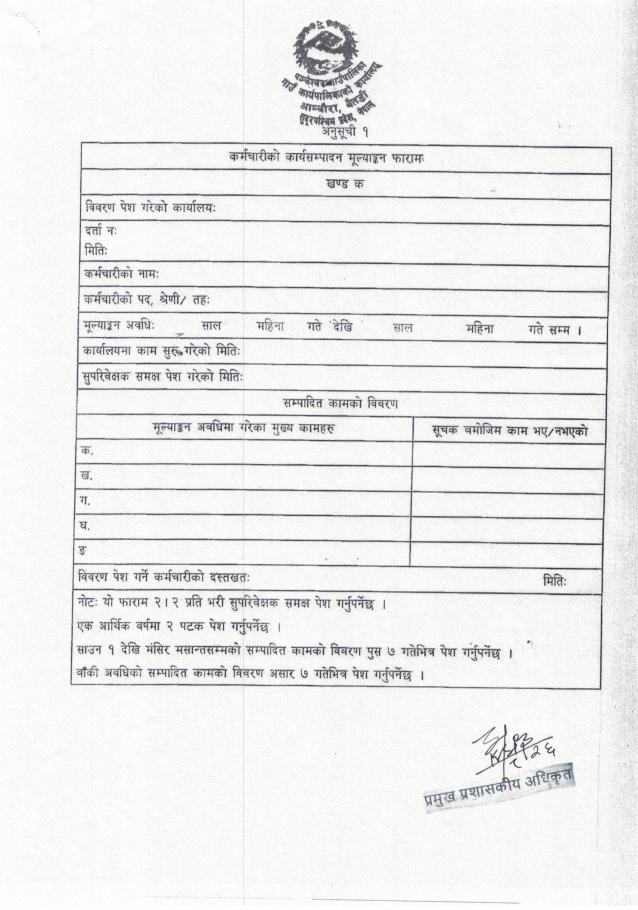 पञ्चेश्वर गाउँपालिका
गाउँ कार्यपालिकाको कार्यालय
आम्चौरा, बैतडी
सुदूरपश्चिम प्रदेश, नेपाल
अनुसूची १
कर्मचारीको कार्यसम्पादन मूल्याङ्कन फारामः
खण्ड क
विवरण पेश गरेको कार्यालयः
दर्ता नः
मितिः
कर्मचारीको नामः
कर्मचारीको पद, श्रेणी/ तहः
मूल्याङ्कन अवधिः साल महिना गते देखि साल महिना गते सम्म ।
कार्यालयमा काम सुरु गरेको मितिः
सुपरिवेक्षक समक्ष पेश गरेको मितिः
सम्पादित कामको विवरण
मूल्याङ्कन अवधिमा गरेका मुख्य कामहरु सूचक बमोजिम काम भए/नभएको
क.
ख.
ग.
घ.
ङ
विवरण पेश गर्ने कर्मचारीको दस्तखतः मितिः
नोटः यो फाराम २।२ प्रति भरी सुपरिवेक्षक समक्ष पेश गर्नुपर्नेछ ।
एक आर्थिक वर्षमा २ पटक पेश गर्नुपर्नेछ ।
साउन १ देखि मंसिर मसान्तसम्मको सम्पादित कामको विवरण पुस ७ गतेभित्र पेश गर्नुपर्नेछ ।
बाँकी अवधिको सम्पादित कामको विवरण असार ७ गतेभित्र पेश गर्नुपर्नेछ ।
प्रमुख प्रशासकीय अधिकृत